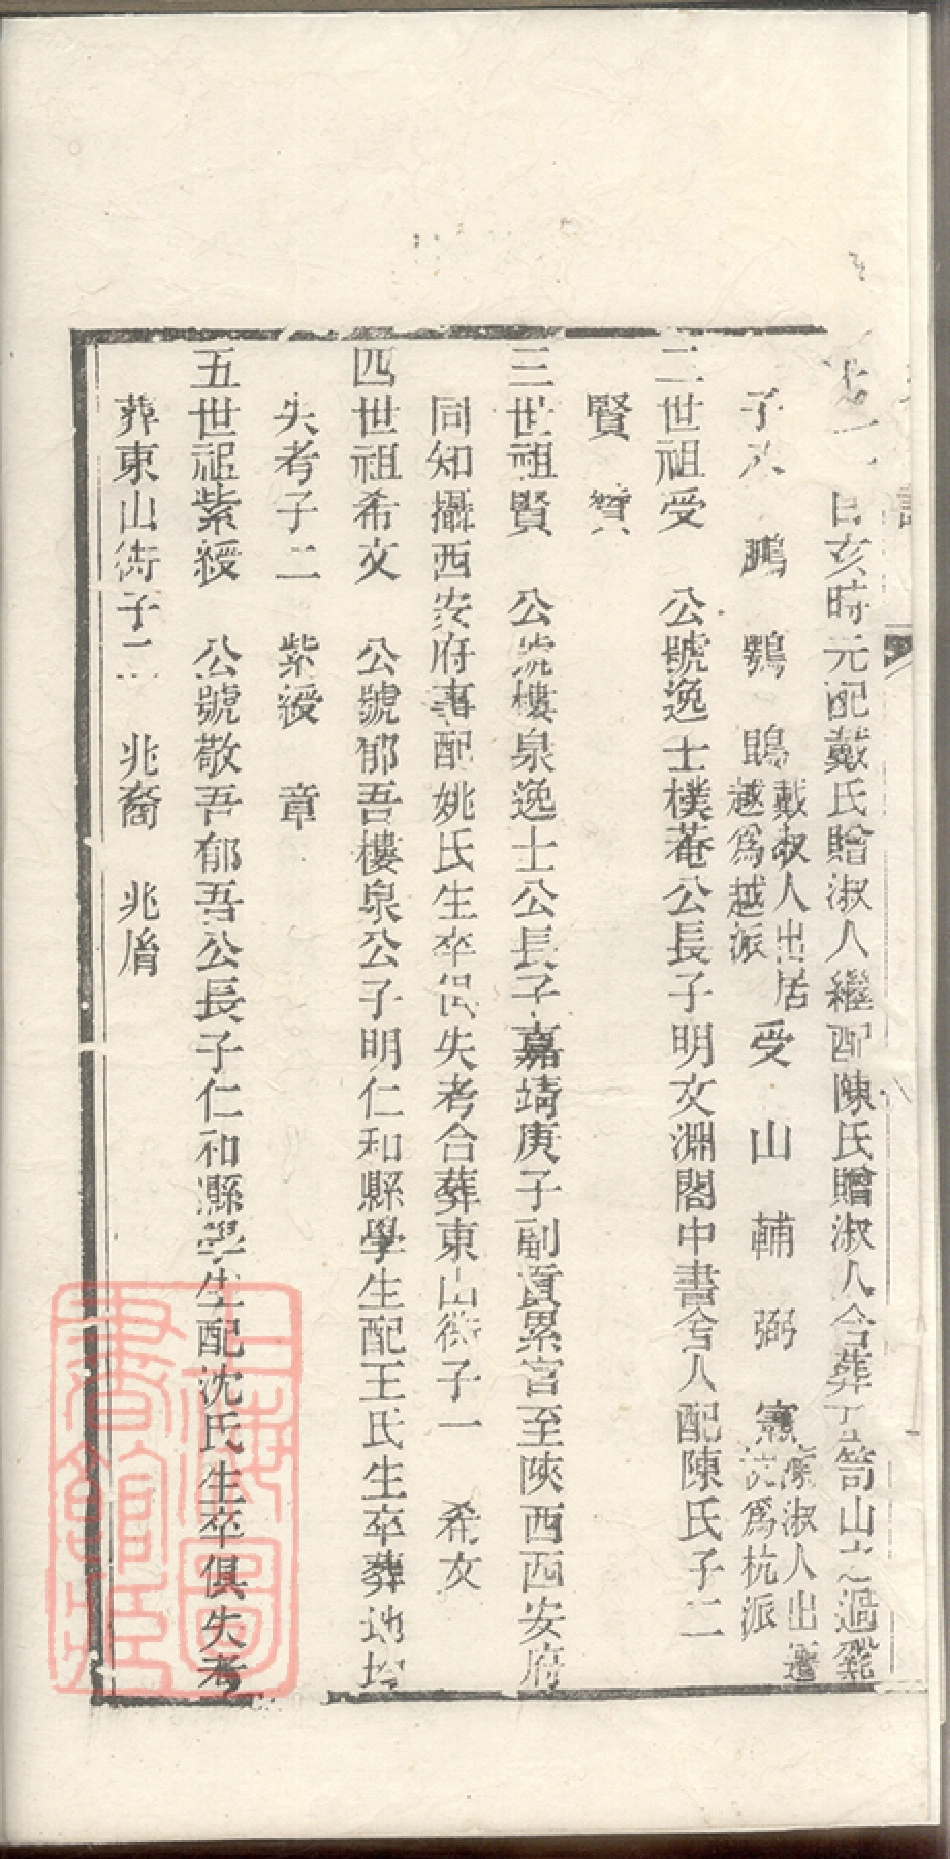 日亥時元配戴氏贈淑人繼配陳氏贈淑人合葬笥山之過
子 鵬 鶚 鵾 戴淑人出居越為越派 受 山 輔 弼 寮 陳淑人出遷杭為杭派
二世祖受 公號逸士樸菴公長子明文淵閣中書舍人配陳氏子二
賢 贊
三世祖賢 公號樓泉逸士公長子嘉靖庚子副貢累官至陝西西安府
同知攝西安府事配姚氏生卒俱失考合葬東山衖子一 希文
四世祖希文 公號郁吾樓泉公子明仁和縣學生配王氏生卒葬地均
失考子二 紫綬 章
五世祖紫綬 公號敬吾郁吾公長子仁和縣學生配沈氏生卒俱失考
葬東山衖子二 兆裔 兆㡇
上海圖書館藏